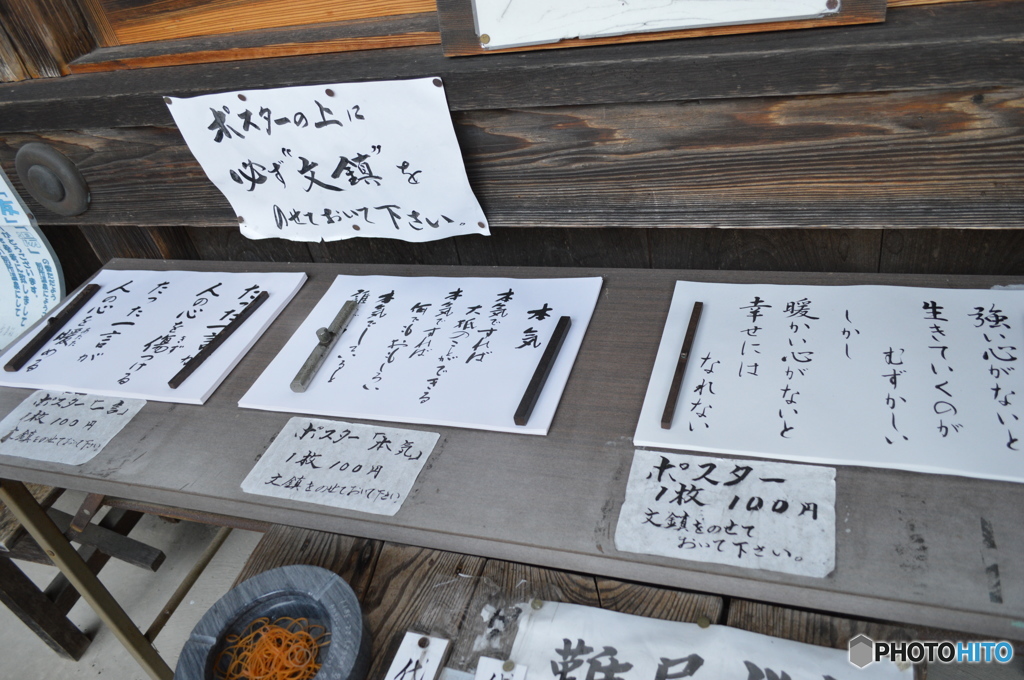 ポスターの上に
必ず"文鎮"を
のせておいて下さい。
強い心がないと
生きていくのが
むずかしい
しかし
暖かい心がないと
幸せには
なれない
本気
本気ですれば
大抵のことができる
本気ですれば
何でもおもしろい
本気でしていると
誰
たった一言が
人の心を傷つける
たった一言が
人の心を暖める
1枚100円
文鎮をのせておいて下さい
ポスター「本気」
1枚100円
文鎮をのせておいて下さい
ポスター
1枚100円
文鎮をのせて
おいて下さい。
代
PHOTOHITO